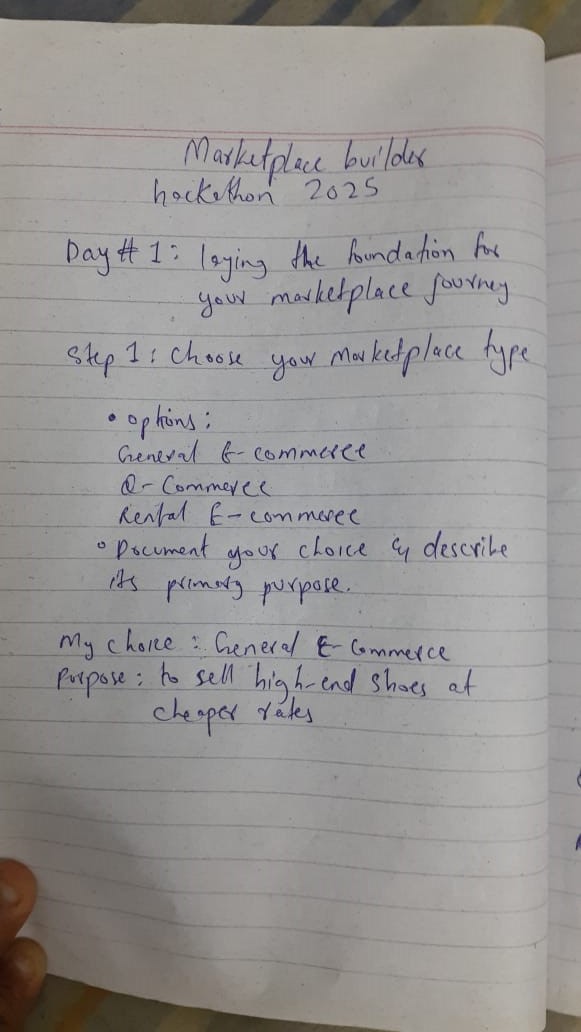 Marketplace builder
hackethon 2025
Day # 1: laying the foundation for
your marketplace journey
Step 1: choose your marketplace type
• options:
General E-commerce
Q-Commerce
Rental E-commerce
• Document your choice & describe
its primary purpose.
My choice: General E-Commerce
Purpose: to sell high-end shoes at
cheaper rates